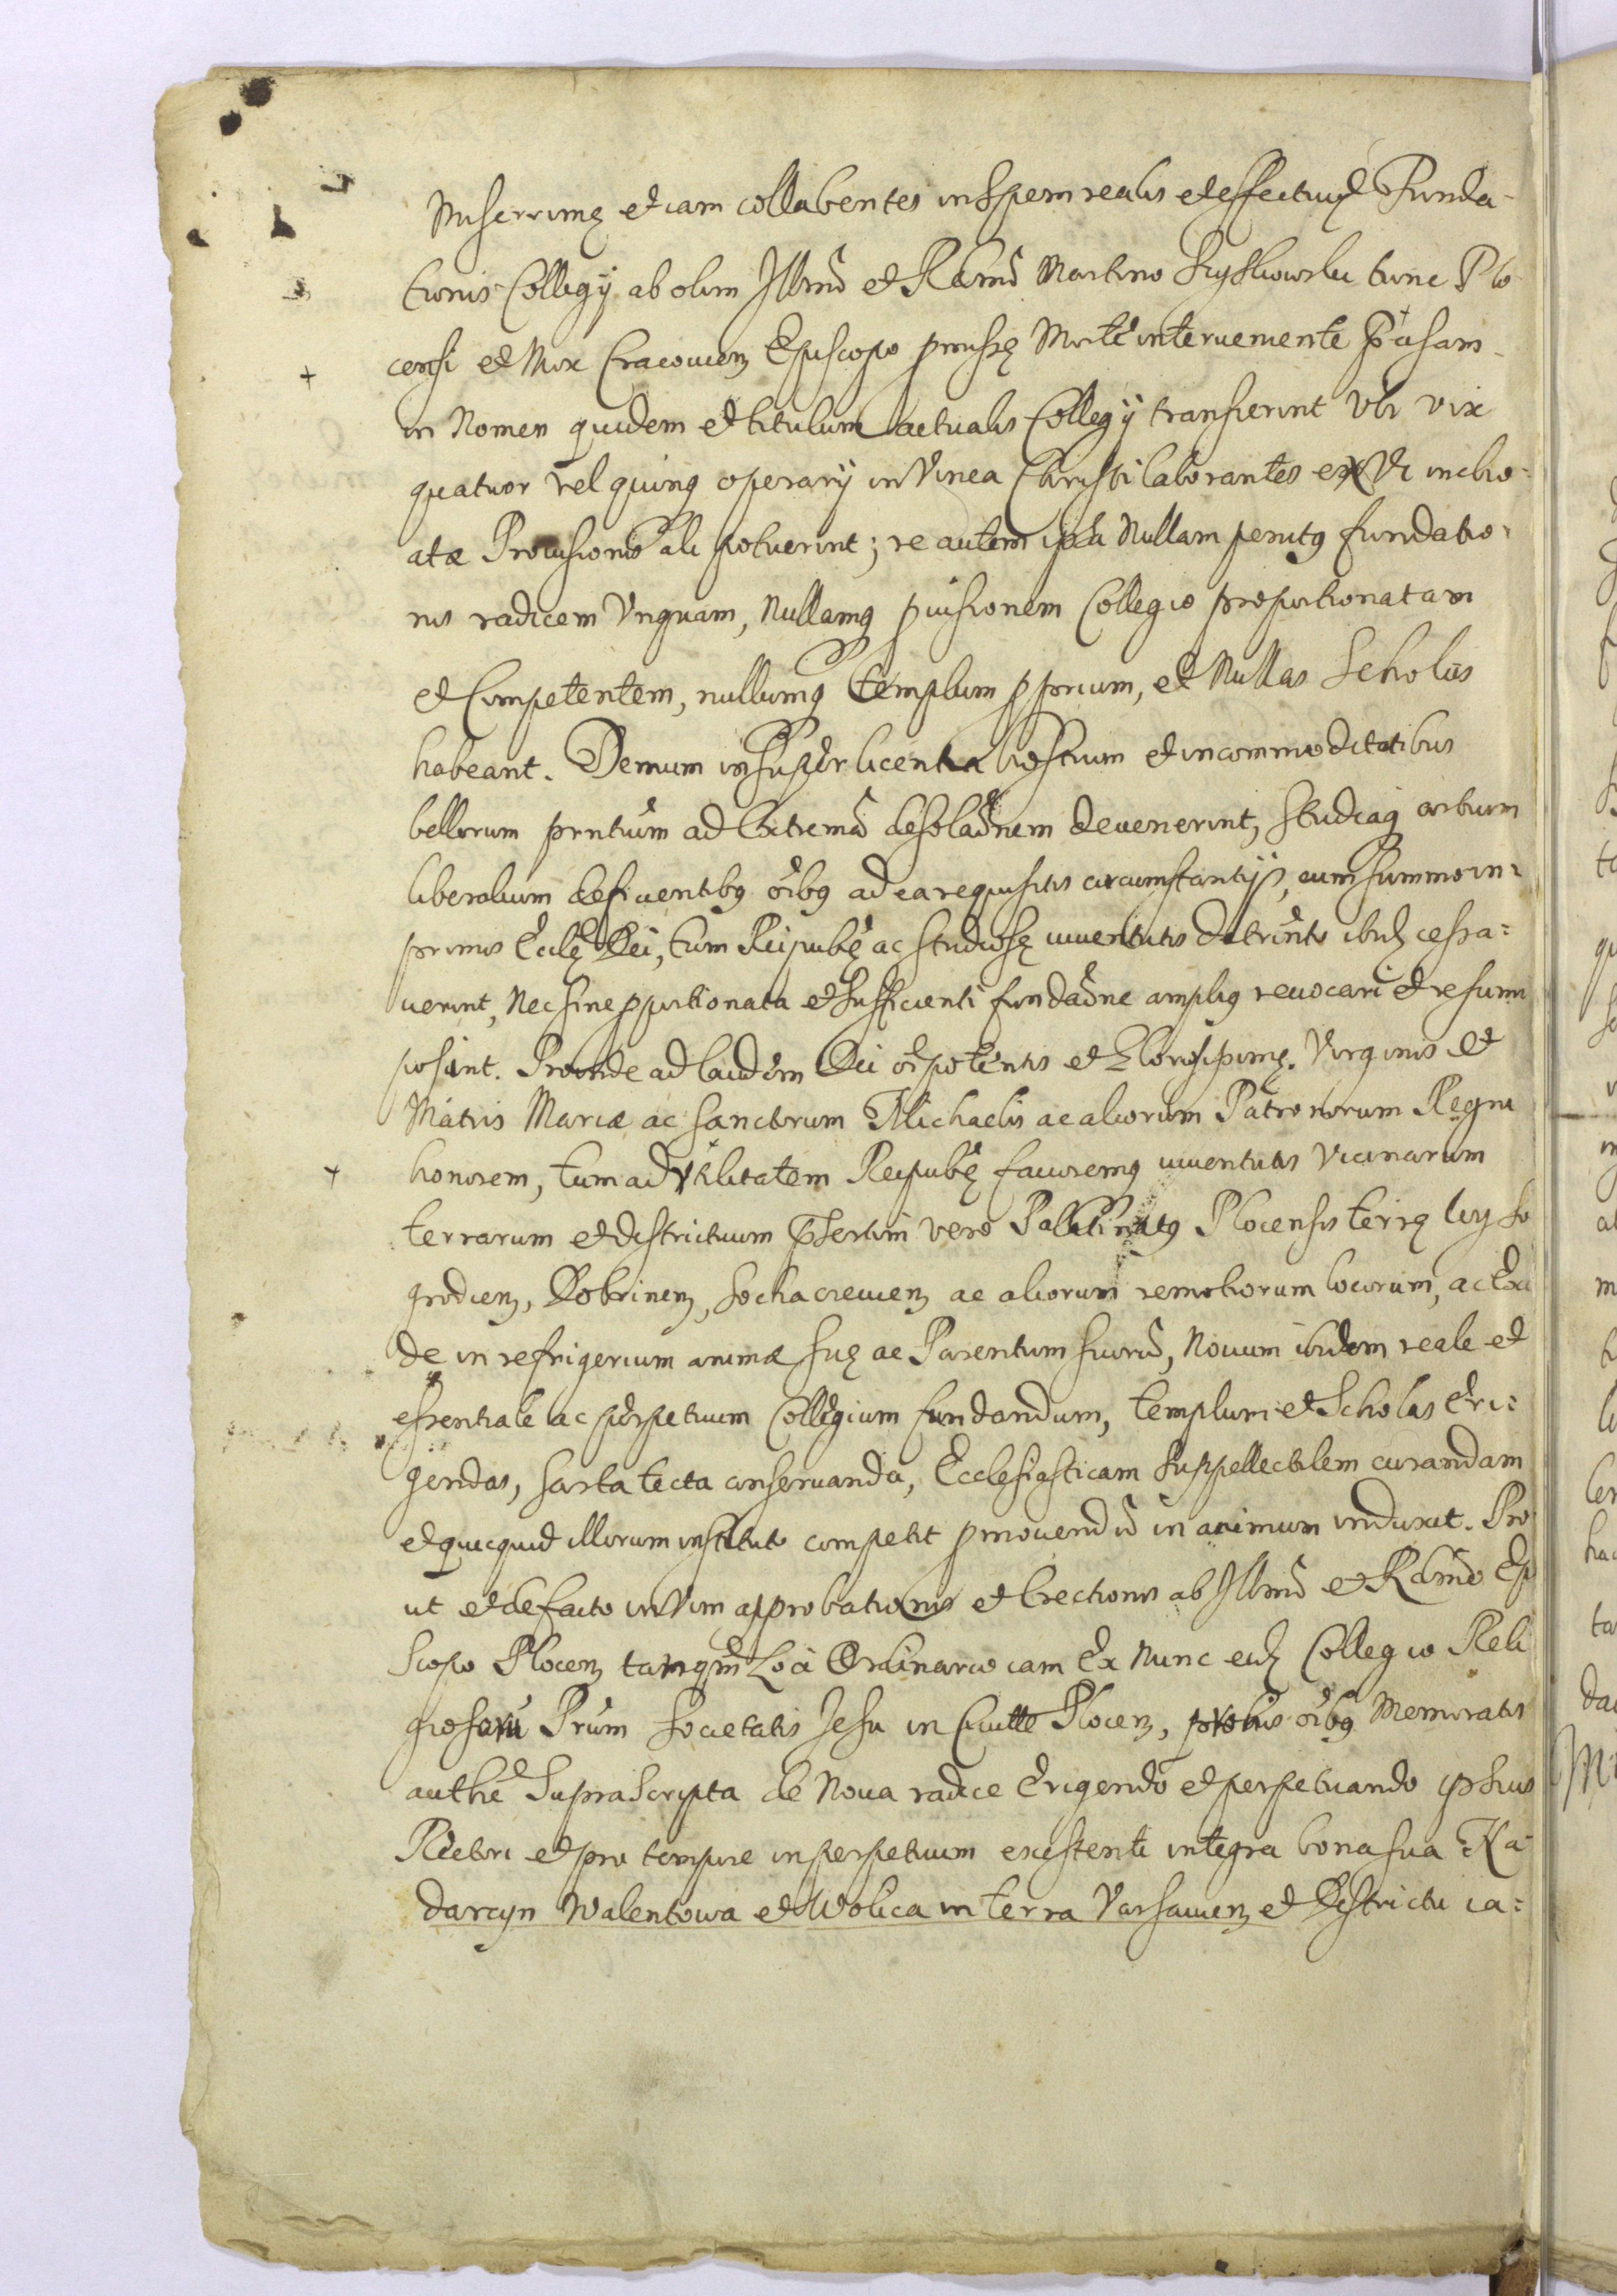 Miserrimę et iam collabentes in Spem realis et effectivę Funda-
tionis Collegij ab olim Illmo et Rdmo Martino Szyszkowski tunc Plo
censi et Mox Cracovien Episcopo promissę Morte interveniente
in Nomen quidem et titulum actualis Collegij transierint Vbi vix
quatuor vel quinq operarij in Vinea Christi laborantes ex Vi incho-
atæ Provisionis ali potuerint; re autem ipsa Nullam penitq fundatio-
nis radicem Vnquam, Nullamq pvisionem Collegio proportionatam
et Competentem, nullumq templum pprium, et Nullas Scholas
habeant. Demum insuper licentia hostium et incommoditatibus
bellorum prntium ad Extremã desolaõnem devenerint, Studiaq artium
liberalium deficientibq oibq ad ea requisitis circumstantijs, cum summo in-
primis Eccle Dei, tum Reipubę ac studiosę iuventutis detrimto ibid cessa=
verint, Nec sine pportionata et sufficienti fundaõne ampliq revocari et resumi
possint. Proinde ad laudem Dei oipotentis et Gloriosissimę Virginis et
Matris Mariæ ac Sanctorum Michaelis ac aliorum Patronorum Regni
honorem, tum ad Vtilitatem Reipubę favoremq iuventutis Vicinarum
terrarum et districtuum psertim vero Palatinatq Plocensis terrę Wyszo
grodien, Dobrinen, Sochacevien ac aliorum remotiorum locorum, ac Exin
de in refrigerium animæ suę ac Parentum suorũ, Novum ibidem reale et
essentiale ac perpetuum Collegium fundandum, templum et Scholas Eri=
gendas, sarta tecta conservanda, Ecclesiasticam Suppellectilem curandam
et quicquid illorum instituto competit pmovendũ in animum induxit. Pro
ut et de facto in Vim approbationis et Erectionis ab Illmo et Rdmo Epi
scopo Plocen tanqm Loci Ordinario iam Ex Nunc eid Collegio Reli
giosorũ Prum Societatis Jesu in Civitte Plocen, oibq Memoratis
authe Suprascripta de Nova radice Erigendo et perpetuando ipsius
Rectori et pro tempore in perpetuum existenti integra bona sua Na
darzyn Walentowa et Wolica in terra Varsavien et Districtu ia=